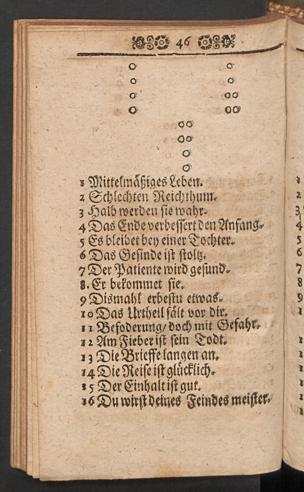 46
1 Mittelmäßiges Leben.
2 Schlechten Reichthum.
3 Halb werden sie wahr.
4 Das Ende verbessert den Anfang.
5 Es bleibet bey einer Tochter.
6 Das Gesinde ist stoltz.
7 Der Patiente wird gesund.
8. Er bekommet sie.
9 Dismahl erbestu etwas.
10 Das Urtheil fält vor dir.
11 Befoderung/ doch mit Gefahr.
12 Am Fieber ist sein Todt.
13 Die Brieffe langen an.
14 Die Reise ist glücklich.
15 Der Einhalt ist gut.
16 Du wirst deines Feindes meister.